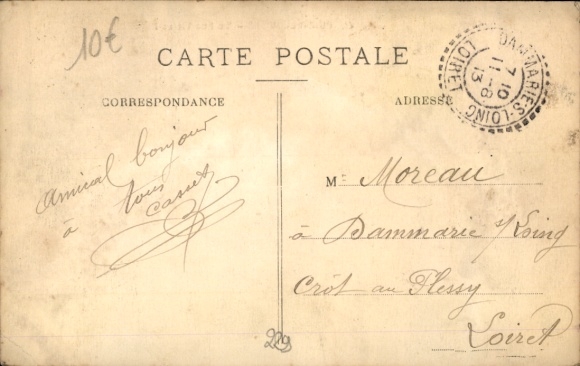 10€
CARTE POSTALE
CORRESPONDANCE
ADRESSE
DAMMARIE-S-LOING
7 10
11 -8
13
LOIRET
Amical bonjour
à tous
M Moreau
à Dammarie s/Loing
Crôt au Plessy
Loiret
229